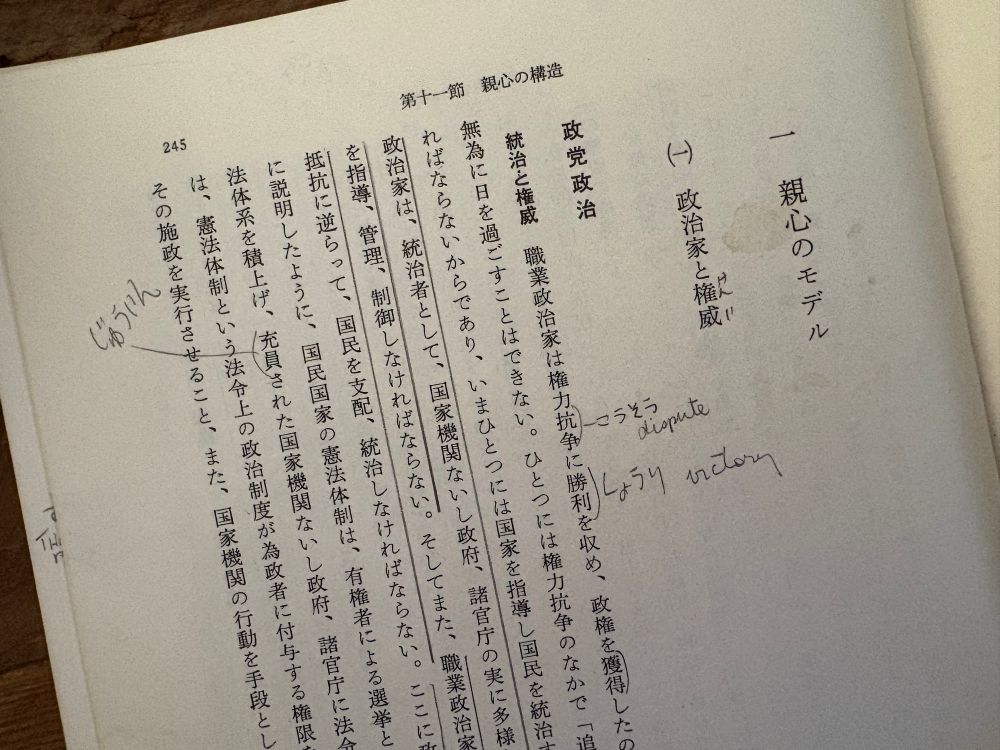 第十一節　親心の構造
245
一　親心のモデル
㈠　政治家と権威
けんい
政党政治
統治と権威　職業政治家は権力抗争に勝利を収め、政権を獲得したの
こうそう
dispute
しょうり victory
無為に日を過ごすことはできない。ひとつには権力抗争のなかで「追
ればならないからであり、いまひとつには国家を指導し国民を統治す
政治家は、統治者として、国家機関ないし政府、諸官庁の実に多様
を指導、管理、制御しなければならない。そしてまた、職業政治家
抵抗に逆らって、国民を支配、統治しなければならない。ここに政
に説明したように、国民国家の憲法体制は、有権者による選挙と
法体系を積上げ、充員された国家機関ないし政府、諸官庁に法令
は、憲法体制という法令上の政治制度が為政者に付与する権限を
その施政を実行させること、また、国家機関の行動を手段とし
じゅういん